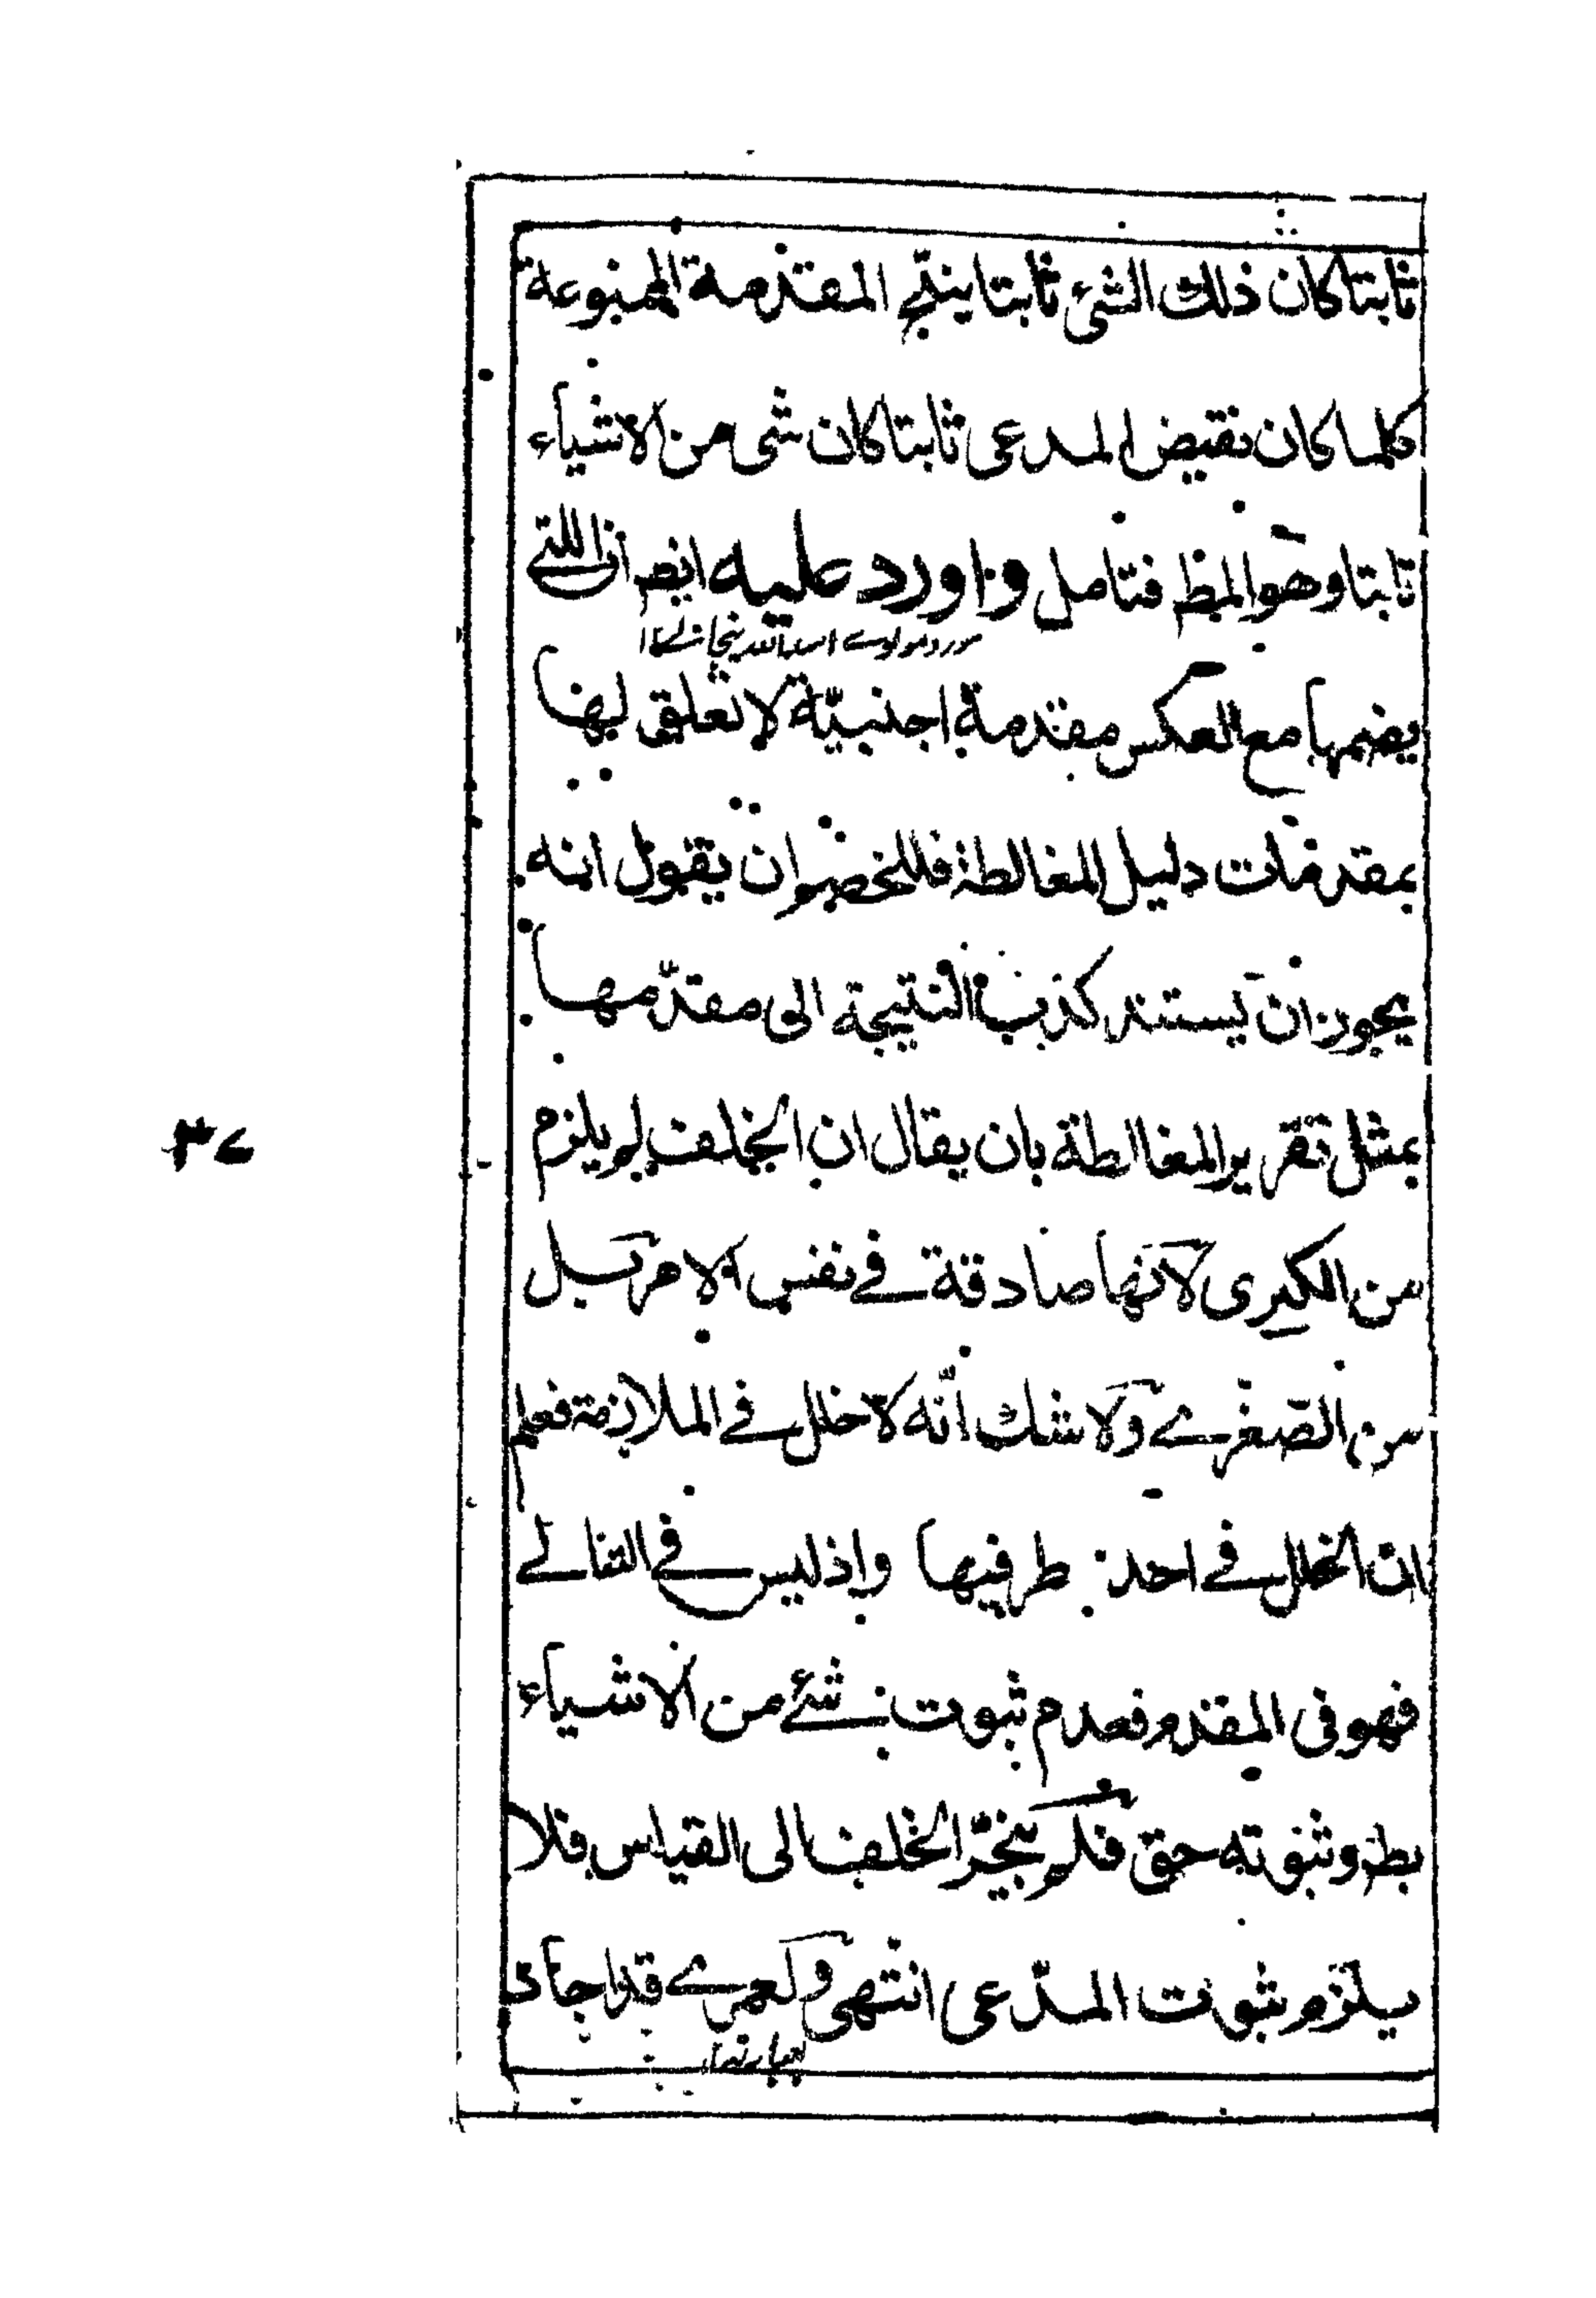 ثابتا كان ذلك الشئ ثابتا ينتج المقدمة الممنوعة
كلما كان نقيض المدعى ثابتا كان شى من الاشياء
ثابتا وهو المط فتامل واورد عليه ايض ان اللتى
مورد مولوى اسد الله
يضمها مع العكس مقدمة اجنبيّة لا تعلق لها
بمقدمات دليل المغالطة فللخصم ان يقول انه
يجوز ان يستند كذب النتيجة الى مقدّمها
بمثل تقرير المغالطة بان يقال ان الخلف لم يلزم
من الكبرى لانها صادقة فى نفس الامر بل
من الصّغرى ولا شك انّه لا خلل فى الملازمة فعلم
ان الخلل فى احد طرفيها واذ ليس فى التالى
فهو فى المقدم فعدم ثبوت شئ من الاشياء
بط وثبوته حق فلم ينجرّ الخلف الى القياس فلا
يلزم ثبوت المدّعى انتهى ولعمرى قد اجاد
٣٧